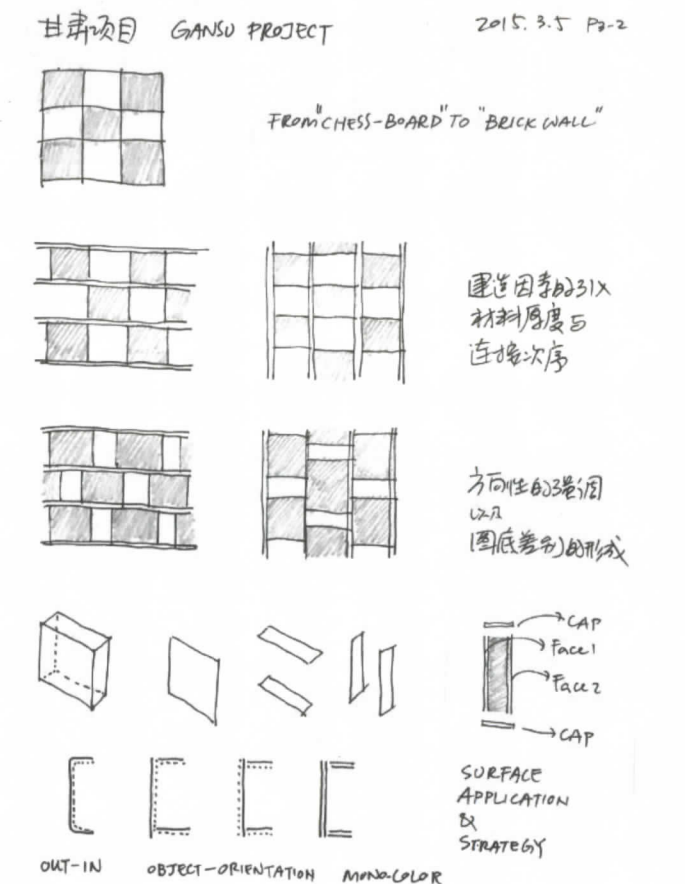 甘肃项目 GANSU PROJECT 2015.3.5 Pg-2
FROM "CHESS-BOARD" TO "BRICK WALL"
建造因素的引入
材料厚度与
连接次序
方向性的强调
以及
图底差别的形成
CAP
Face1
Face2
CAP
SURFACE
APPLICATION
&
STRATEGY
OUT-IN OBJECT-ORIENTATION MONO-COLOR